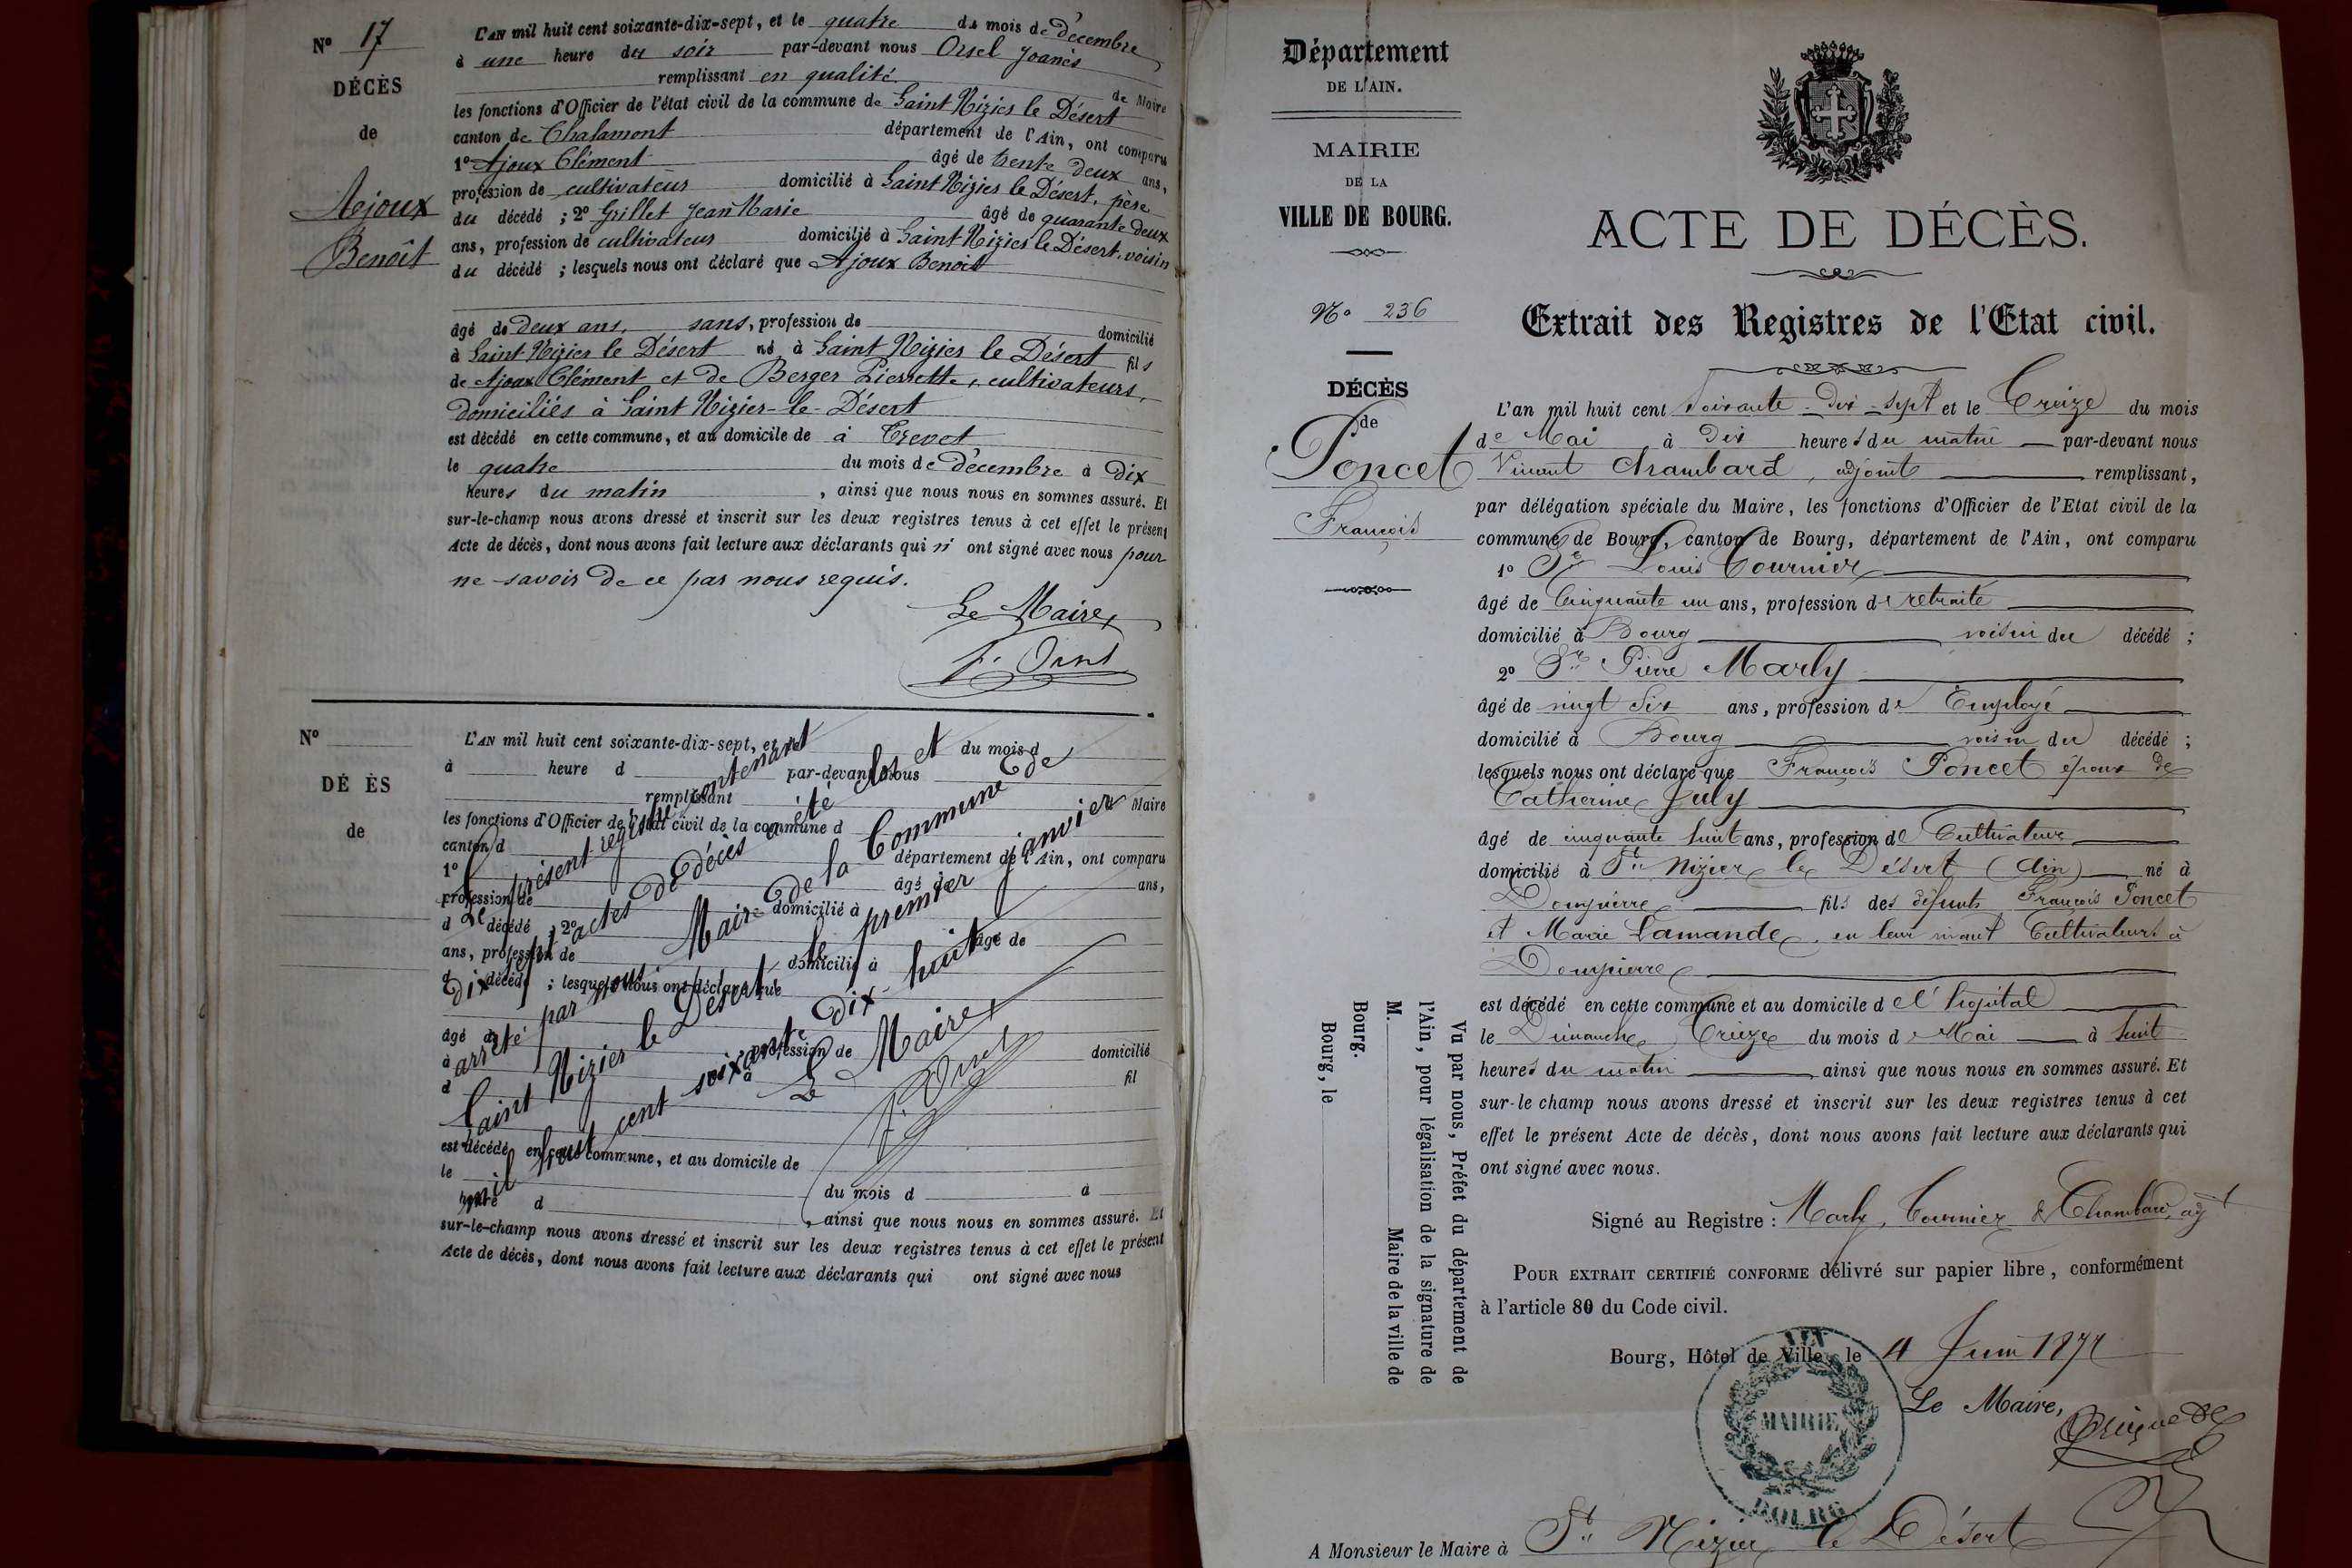 N° 17
DÉCÈS
de
Ajoux
Benoît
L'AN mil huit cent soixante-dix-sept, et le quatre du mois de décembre
à une heure du soir par-devant nous Orsel Joanès
remplissant en qualité de Maire
les fonctions d'Officier de l'état civil de la commune de Saint Nizier le Désert
canton de Chalamont département de l'Ain, ont comparu
1° Ajoux Clément âgé de trente deux ans,
profession de cultivateur domicilié à Saint Nizier le Désert, père
du décédé ; 2° Grillet Jean Marie âgé de quarante deux
ans, profession de cultivateur domicilié à Saint Nizier le Désert, voisin
du décédé ; lesquels nous ont déclaré que Ajoux Benoit
âgé de deux ans, sans, profession de domicilié
à Saint Nizier le Désert né à Saint Nizier le Désert fils
de Ajoux Clément et de Berger Pierrette, cultivateurs,
domiciliés à Saint Nizier-le-Désert
est décédé en cette commune, et au domicile de à Crevet
le quatre du mois de décembre à dix
heures du matin, ainsi que nous nous en sommes assuré. Et
sur-le-champ nous avons dressé et inscrit sur les deux registres tenus à cet effet le présent
Acte de décès, dont nous avons fait lecture aux déclarants qui n' ont signé avec nous pour
ne savoir de ce par nous requis.
Le Maire,
J. Orsel
N°
DÉ ÈS
de
L'AN mil huit cent soixante-dix-sept, et le du mois d
à heure d par-devant nous
remplissant Maire
les fonctions d'Officier de l'état civil de la commune d
canton d département de l'Ain, ont comparu
1° âgé de ans,
profession de domicilié à
d décédé ; 2° âgé de
ans, profession de domicilié à
d décédé ; lesquels nous ont déclaré que
âgé d profession de domicilié
à à
d fil
est décédé en cette commune, et au domicile de
le du mois d à
heure d , ainsi que nous nous en sommes assuré. Et
sur-le-champ nous avons dressé et inscrit sur les deux registres tenus à cet effet le présent
Acte de décès, dont nous avons fait lecture aux déclarants qui ont signé avec nous
Le présent registre contenant
dix sept actes de décès a été clos et
arrêté par nous Maire de la Commune de
Saint Nizier le Désert le premier janvier
mil huit cent soixante dix-huit
Le Maire,
J. Orsel
Département
DE L'AIN.
MAIRIE
DE LA
VILLE DE BOURG.
N° 236
DÉCÈS
de
Poncet
François
ACTE DE DÉCÈS.
Extrait des Registres de l'Etat civil.
L'an mil huit cent soixante-dix-sept et le treize du mois
de Mai à dix heures du matin par-devant nous
Vincent Chambard, adjoint remplissant,
par délégation spéciale du Maire, les fonctions d'Officier de l'Etat civil de la
commune de Bourg, canton de Bourg, département de l'Ain, ont comparu
1° Sr Louis Tournier
âgé de cinquante un ans, profession de retraité
domicilié à Bourg voisin du décédé ;
2° Sr Pierre Marly
âgé de vingt six ans, profession de Employé
domicilié à Bourg voisin du décédé ;
lesquels nous ont déclaré que François Poncet époux de
Catherine July
âgé de cinquante huit ans, profession de Cultivateur
domicilié à St Nizier le Désert (Ain) né à
Dompierre fils des défunts François Poncet
et Marie Lamande, en leur vivant Cultivateurs à
Dompierre
est décédé en cette commune et au domicile d e l'hôpital
le Dimanche Treize du mois de Mai à huit
heures du matin ainsi que nous nous en sommes assuré. Et
sur-le champ nous avons dressé et inscrit sur les deux registres tenus à cet
effet le présent Acte de décès, dont nous avons fait lecture aux déclarants qui
ont signé avec nous.
Signé au Registre : Marly, Tournier & Chambard, adjt
POUR EXTRAIT CERTIFIÉ CONFORME délivré sur papier libre, conformément
à l'article 80 du Code civil.
Bourg, Hôtel de Ville, le 4 Juin 1877
Le Maire,
MAIRIE
BOURG
A Monsieur le Maire à St Nizier le Désert
Vu par nous, Préfet du département de
l'Ain, pour légalisation de la signature de
M. Maire de la ville de
Bourg.
Bourg, le